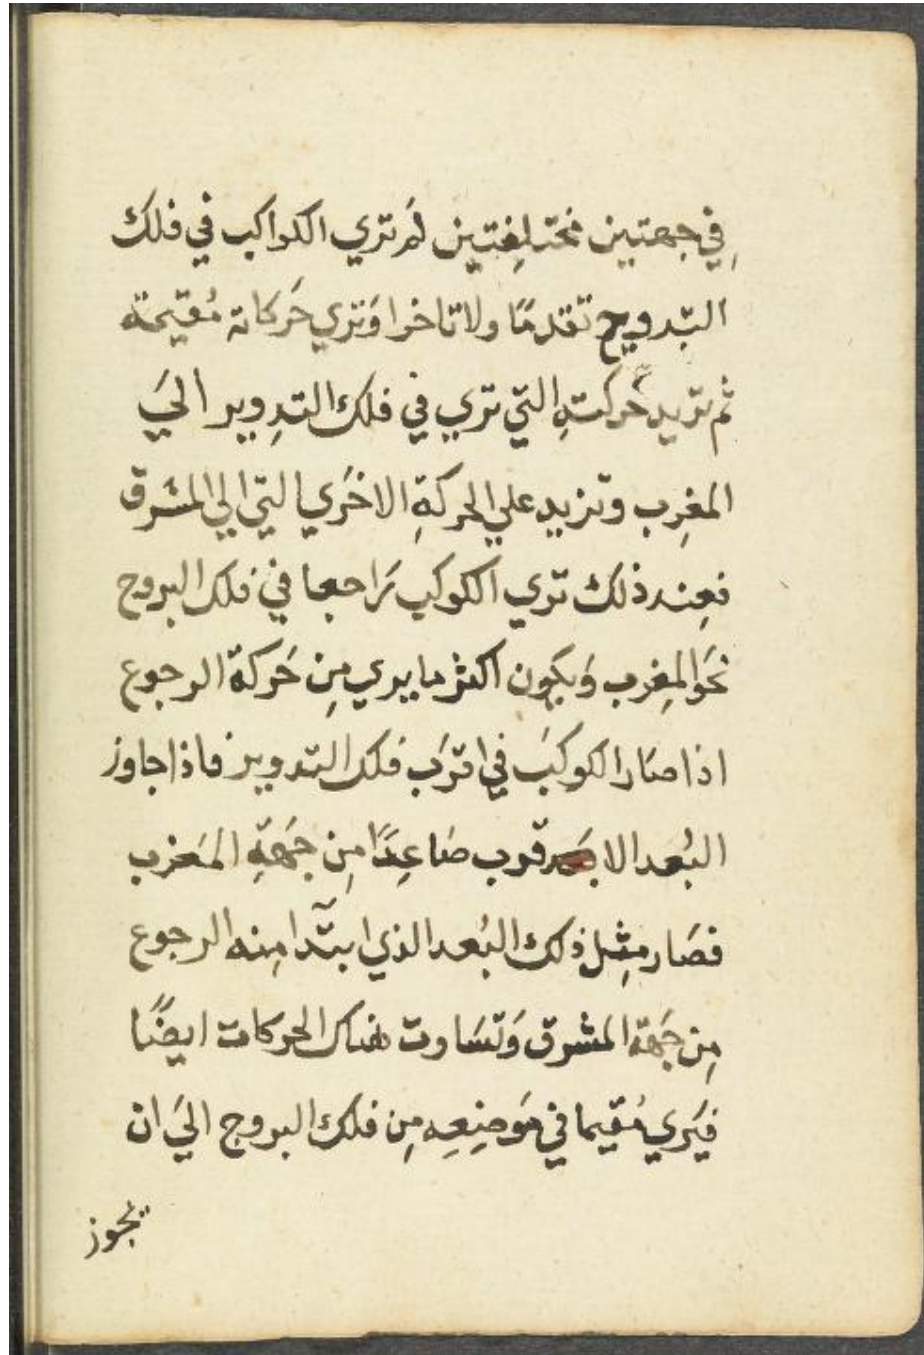 فِي جهتين مختلِفتين لم تري الكواكب في فلك
التدويج تقدمًا ولا تاخرا وَتري حَركاته مُقيمة
ثم تزيد حَركتهِ التي تري في فلك التدِوير الَي
المغرِب وتزيد علي الحركةِ الاخرَي التي الي المشرق
فعِند ذلك تري الكوكب رَاجعا في فلك البروج
نحَو المغِرب وَيكون اكثر ما يري مِن حَركة الرجوع
اذا صَار الكوكبَ في اقرَب فلك التدوير فاذا جاوز
البُعد الا قرب صَاعِدًا مِن جَهةِ المَغرب
فصَار مِثل ذلك البُعد الذي ابتَدا مِنه الرجوع
مِن جَهة المشرق وَتسَاوت هناك الحركات ايضًا
فيَري مُقيما في مَوضِعِه مِن فلك البروج الَي ان
يجوز